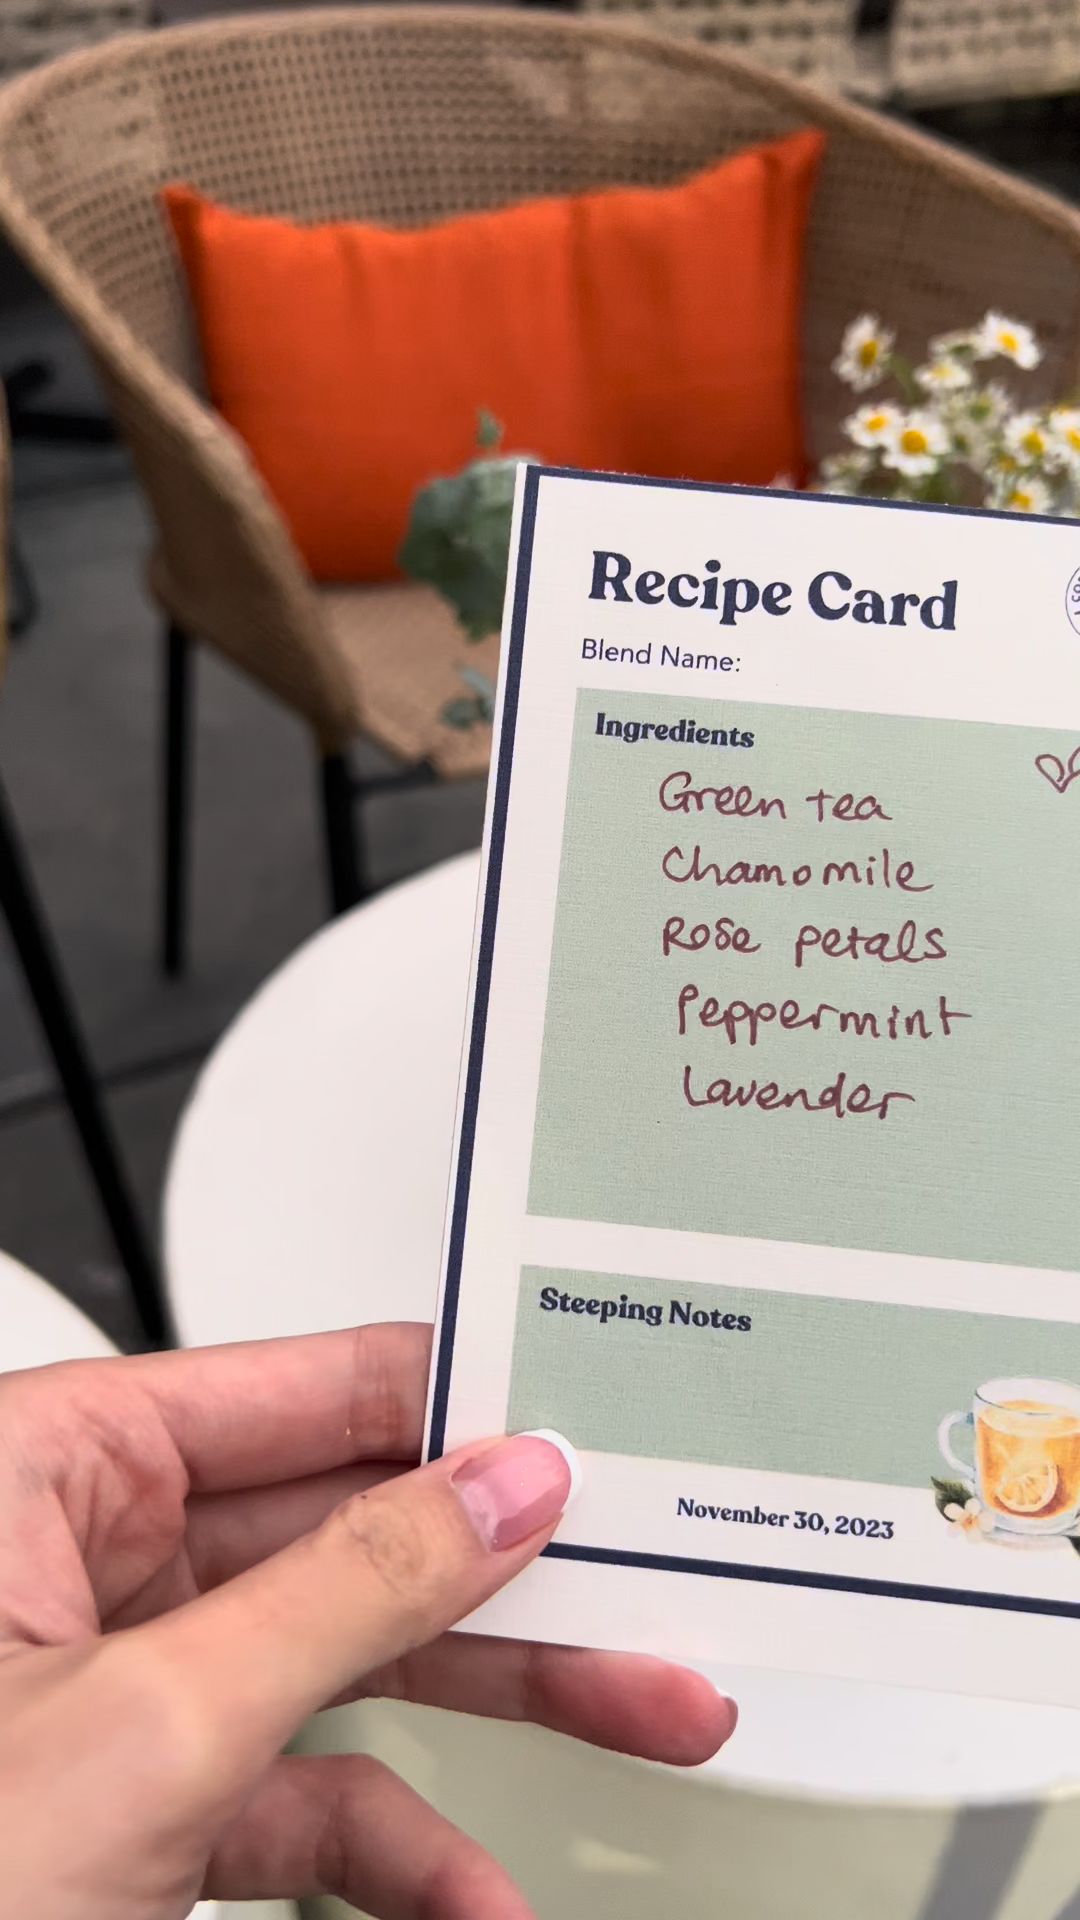 Recipe Card
Blend Name:
Ingredients
Green tea
Chamomile
Rose petals
Peppermint
Lavender
Steeping Notes
November 30, 2023